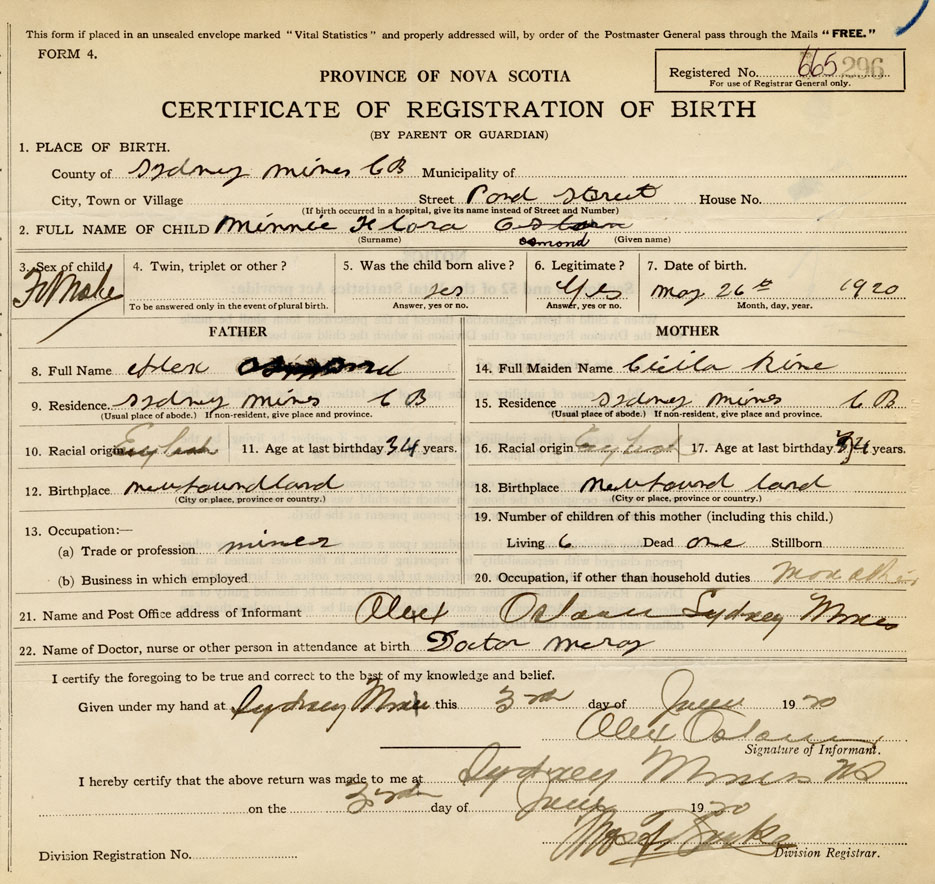 This form if placed in an unsealed envelope marked "Vital Statistics" and properly addressed will, by order of the Postmaster General pass through the Mails "FREE."
FORM 4.
Registered No. 665 296
For use of Registrar General only.
PROVINCE OF NOVA SCOTIA
CERTIFICATE OF REGISTRATION OF BIRTH
(BY PARENT OR GUARDIAN)
1. PLACE OF BIRTH.
County of Sydney mines CB Municipality of
City, Town or Village Street Pond Street House No.
(If birth occurred in a hospital, give its name instead of Street and Number)
2. FULL NAME OF CHILD Minnie Flora
(Surname) osmond (Given name)
3. Sex of child 4. Twin, triplet or other? 5. Was the child born alive? 6. Legitimate? 7. Date of birth.
yes Yes May 26th 1920
To be answered only in the event of plural birth. Answer, yes or no. Answer, yes or no. Month, day, year.
FATHER MOTHER
8. Full Name Alex 14. Full Maiden Name
9. Residence. Sydney mines CB 15. Residence Sydney mines CB
(Usual place of abode.) If non-resident, give place and province. (Usual place of abode.) If non-resident, give place and province.
10. Racial origin English 11. Age at last birthday 34 years. 16. Racial origin English 17. Age at last birthday years.
12. Birthplace newfoundland 18. Birthplace Newfound land
(City or place, province or country.) (City or place, province or country.)
13. Occupation:— 19. Number of children of this mother (including this child.)
(a) Trade or profession miner Living 6 Dead one Stillborn
(b) Business in which employed 20. Occupation, if other than household duties
21. Name and Post Office address of Informant Alex Sydney Mines
22. Name of Doctor, nurse or other person in attendance at birth Doctor
I certify the foregoing to be true and correct to the best of my knowledge and belief.
Given under my hand at Sydney Mines this 3rd day of June 1920
Alex
Signature of Informant.
I hereby certify that the above return was made to me at Sydney Mines NS
on the day of June 1920
Division Registration No. Division Registrar.